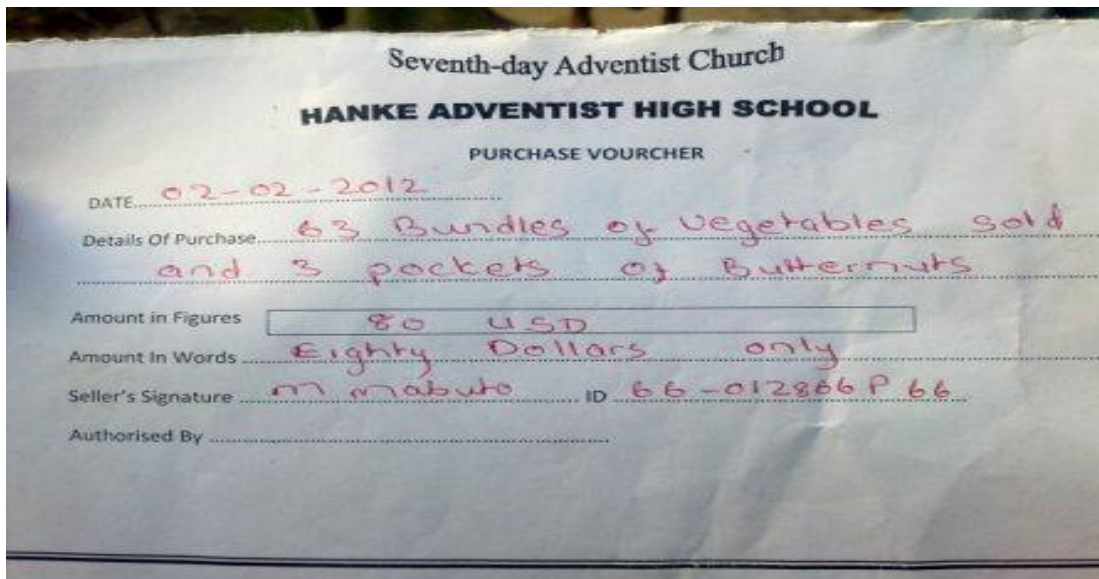 Seventh-day Adventist Church
HANKE ADVENTIST HIGH SCHOOL
PURCHASE VOURCHER
DATE..... 02-02-2012
Details Of Purchase.... 63 Bundles of Vegetables Sold
and 3 pockets of Butternuts
Amount in Figures 80 USD
Amount In Words .... Eighty Dollars only
Seller's Signature .... M Mabuto .... ID 66-012866 P 66
Authorised By ....